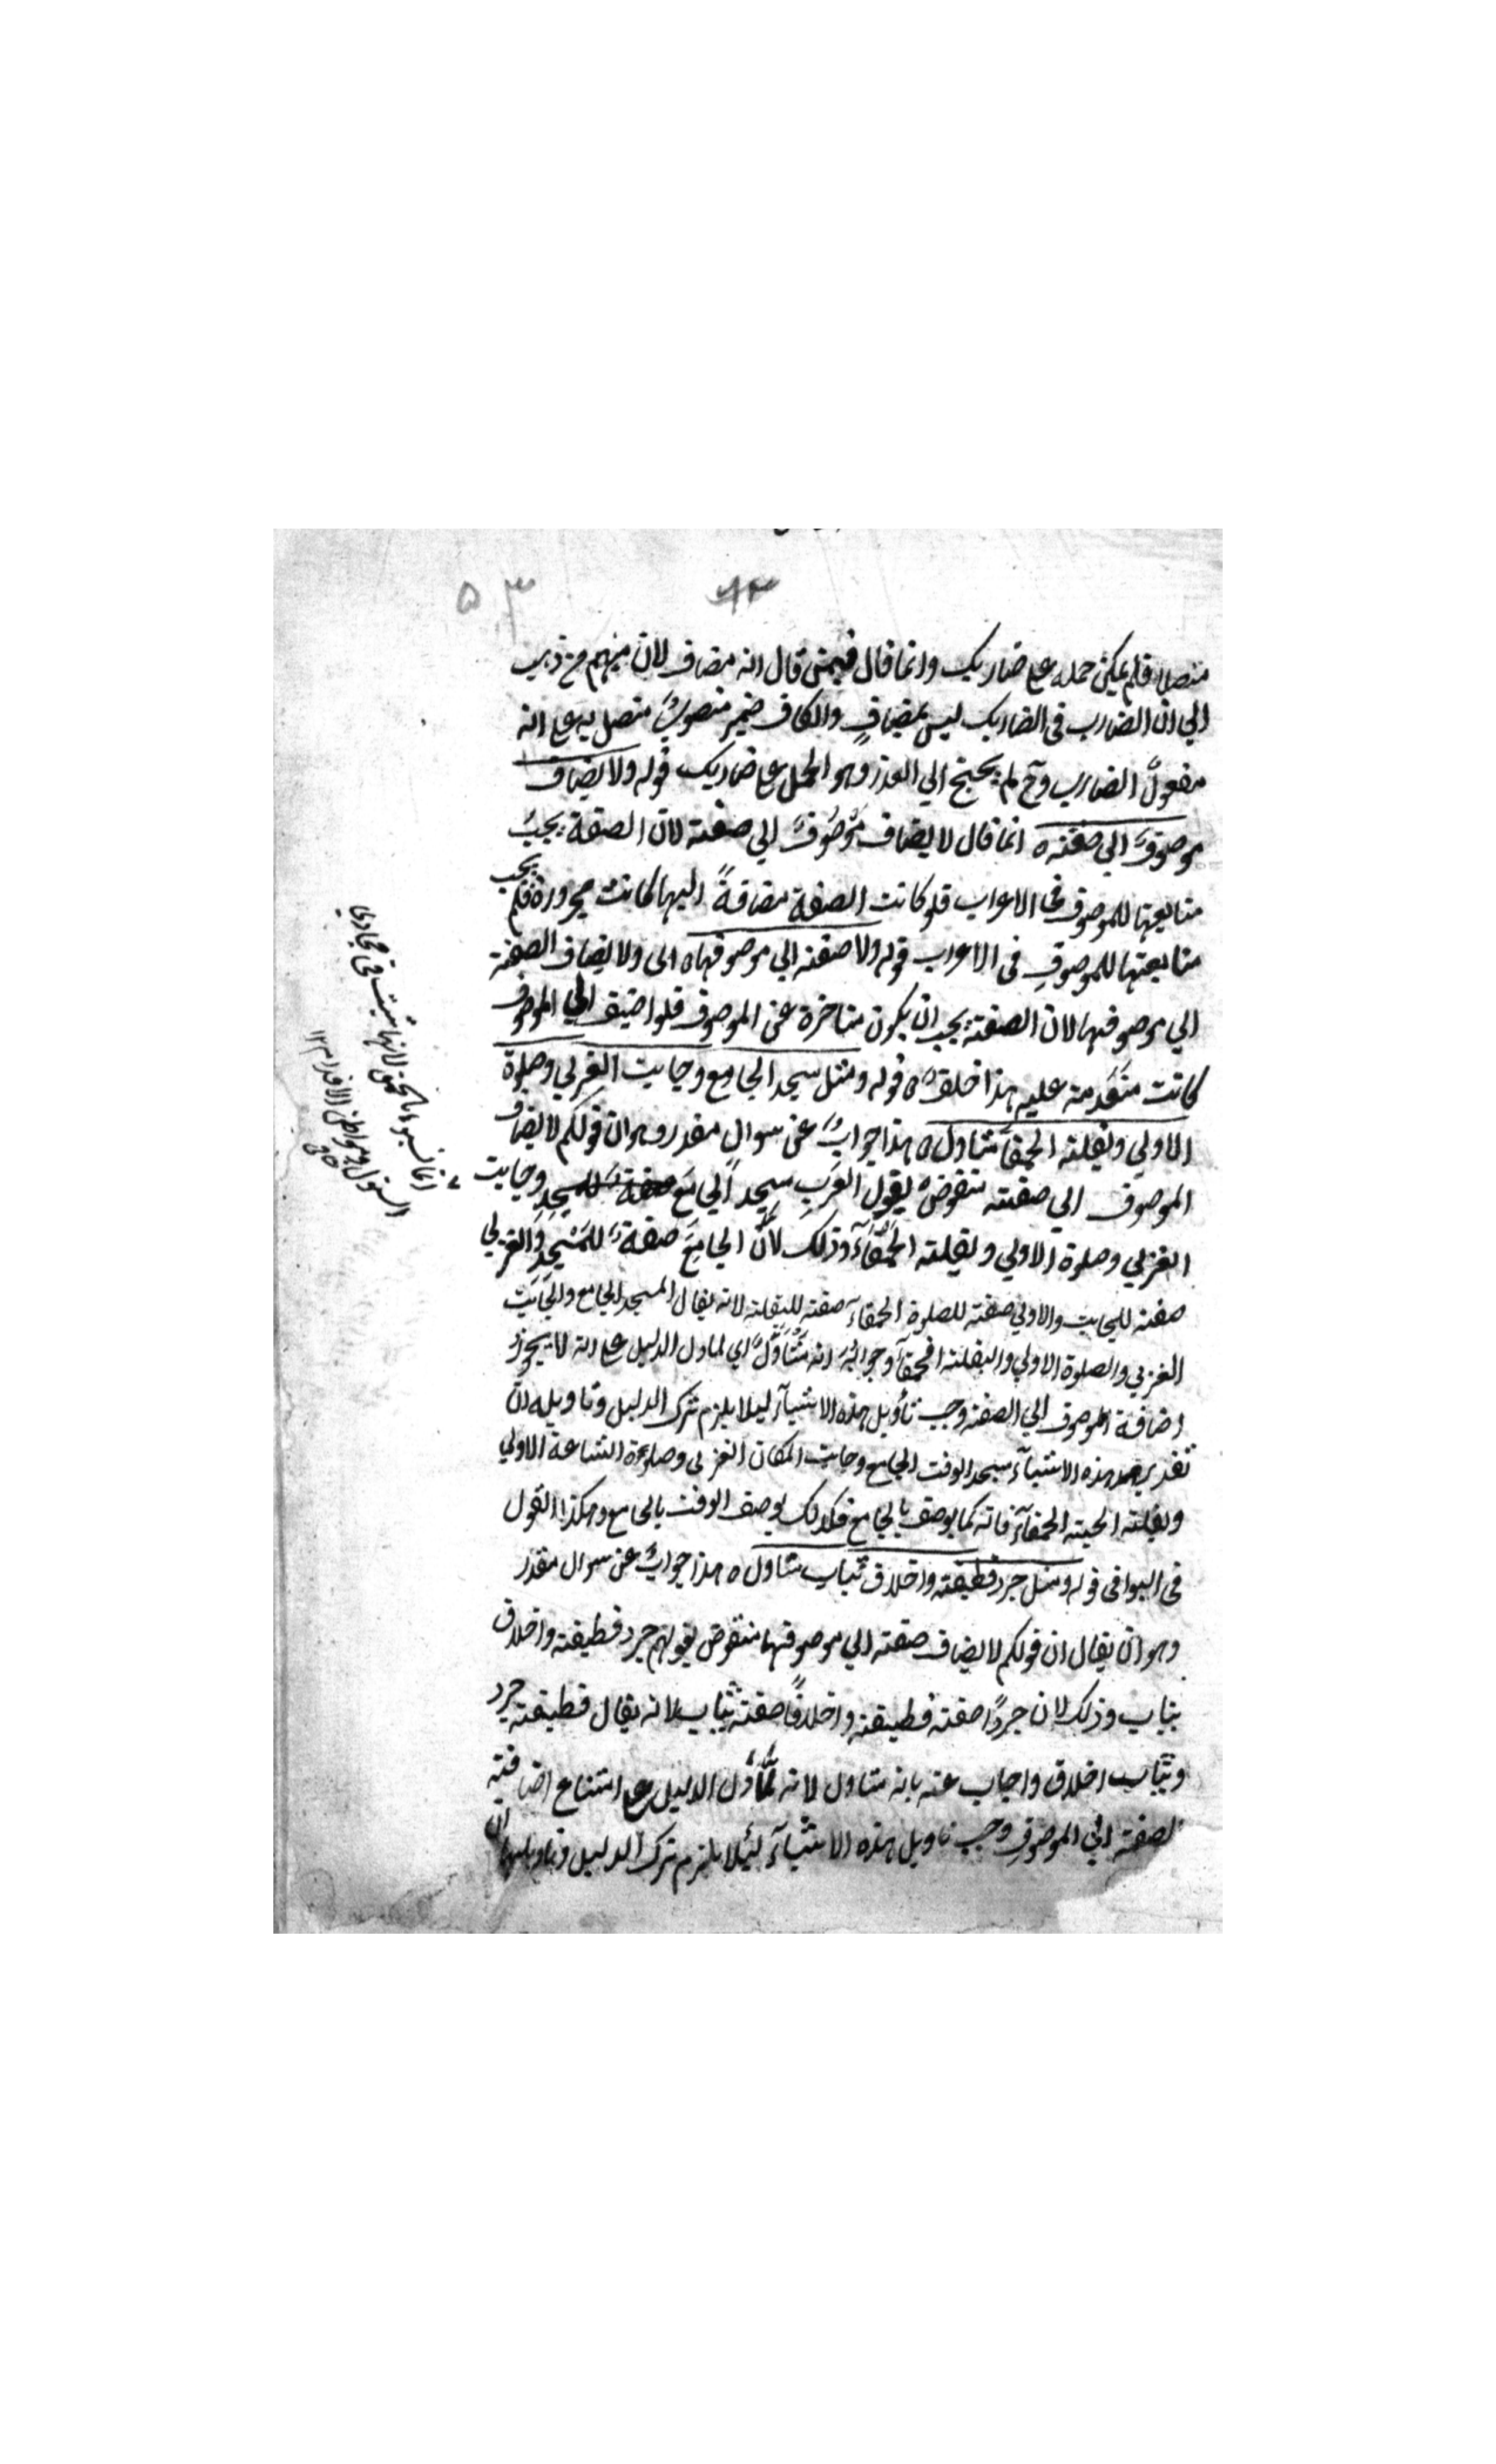 ۵۳
متصلا فلم يمكن حمله على ضاربك وانما قال فيمن قال انه مضاف لان منهم من ذهب
الي ان الضارب في الضاربك ليس بمضافٍ والكاف ضمير منصوبٌ متصل به على انه
مفعولُ الضارب وح لم يحتج الي العذر وهو الحمل على ضاربك قوله ولا يضاف
موصوفٌ الي صفته ه انما قال لا يضاف مَوْصُوفٌ الي صفته لان الصفة يجبُ
متابعتها للموصوف في الاعراب فلو كانت الصفة مضافةً اليها لكانت مجرورة فلم يجب
متابعتها للموصوفِ في الاعراب قوله ولا صفته الي موصوفها ه اى ولا يضاف الصفة
الي موصوفها لان الصفة يجب ان يكون متاخرة عن الموصوف فلو اضيف الي الموصوف
كانت متقدمة عليه هذا خلف ه قوله ومثل مسجد الجامع وجانب الغربي وصلوة
الاولي وبقلة الحمقآ متاول ه هذا جوابٌ عن سوال مقدر وهو ان قولكم لا يضاف
الموصوف الي صفته منقوضٌ بقول العَرب مسجد الجامع وجانب
الغربي وصلوة الاولي وبقلة الحَمقَآءِ وذلك لانَّ الجامعَ صفةٌ للمَسْجدِ وَالغربي
صفة للجانب والاولي صفة للصلوة الحمقآء صفة للبقلة لانه يقال المسجد الجامع والجَانب
الغربي والصلوة الاولي والبقلة الحمقآ وجوابُه انه مُتَأوَّلٌ اي لما دل الدليل على انه لا يجوزُ
اضافة الموصوف الي الصفة وجب تأويل هذه الاشيآء ليلا يلزم ترك الدليل وتاويله انّ
تقدير هذه الاشيآء مسجد الوقت الجامع وجانب المكان الغربي وصلوة الساعة الاولي
وبقلة الحبة الحمقآء فانه كما يوصف بالجامع فكذلك يوصف الوقت بالجامع وهكذا القول
في البواقي قوله ومثل جرد قطيفة واخلاق ثياب متاول ه هذا جوابٌ عن سوال مقدر
وهو ان يقال ان قولكم لا يضاف صفة الي موصوفها منقوض بقولهم جرد قطيفة واخلاق
ثياب وذلك لان جردًا صفة قطيفة واخلاقًا صفة ثياب لانه يقال قطيفة جرد
وثياب اخلاق واجاب عنه بانه متاول لانه لمَّا دَلَّ الدليل على امتناع اضافة
لصفة الي الموصوفِ وجب تاويل هذه الاشيآء لئلا يلزم ترك الدليل وتاويلها ان
انما نسبوها الحمق لانها تنبت في مجاري
السيول ومواطئ الاقدام ١٢